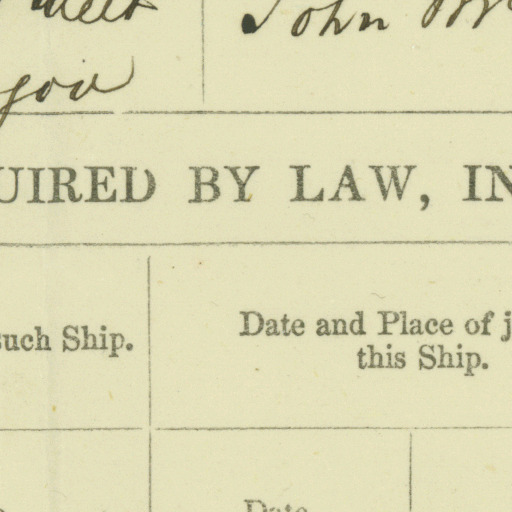 John
UIRED BY LAW, IN
such Ship.
Date and Place of j
this Ship.
Date